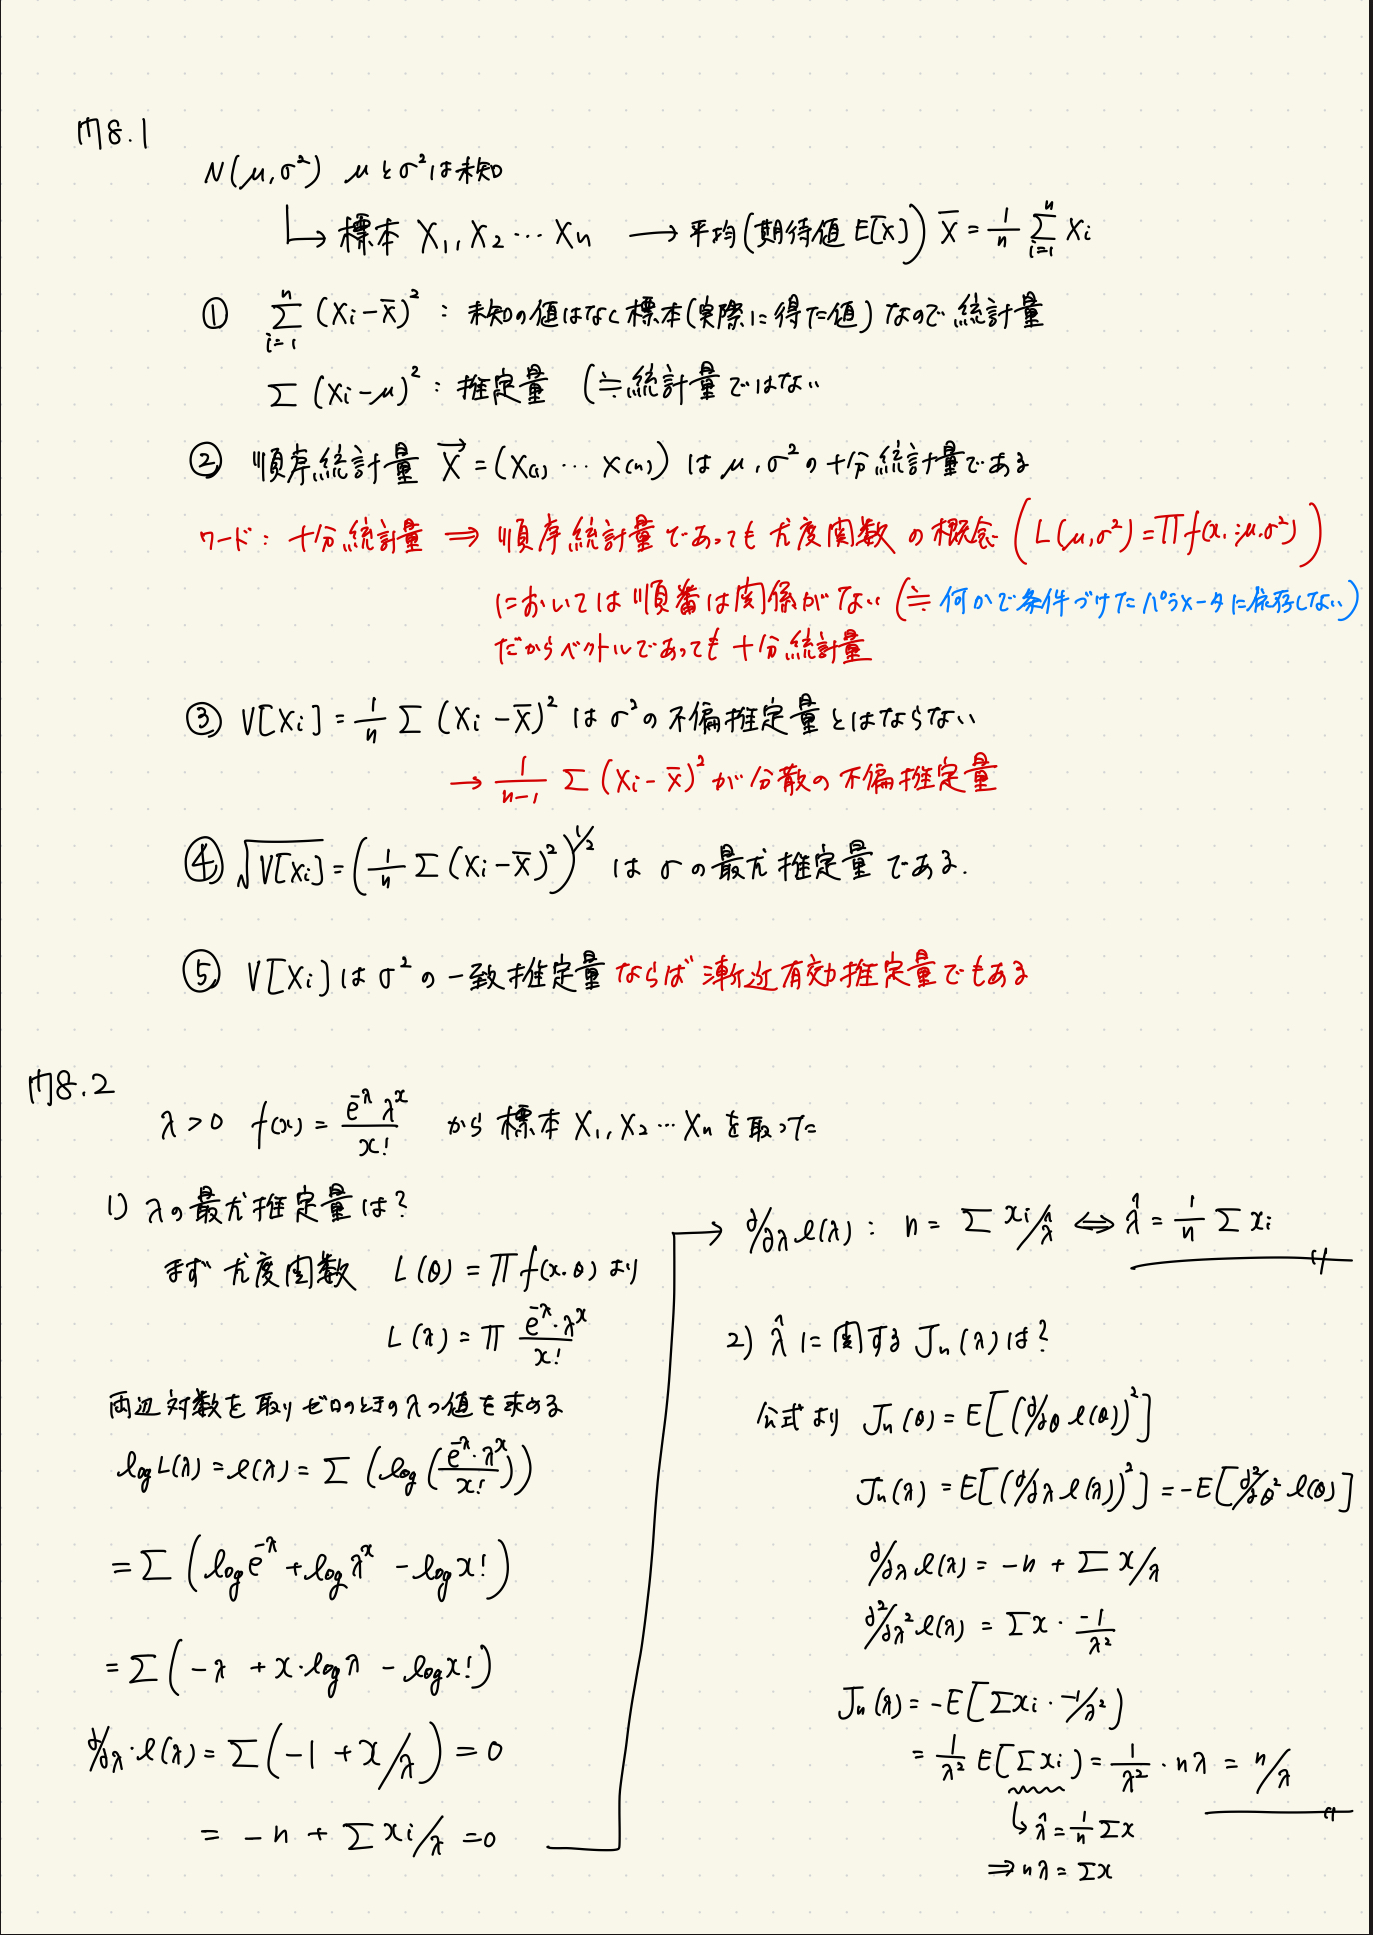 問8.1
N(μ,σ²) μとσ²は未知
↳ 標本 X₁, X₂ … Xn → 平均(期待値 E[X]) X̄ = 1/n Σ_{i=1}^{n} Xi
① Σ_{i=1}^{n} (Xi-X̄)² : 未知の値はなく標本(実際に得た値)なので統計量
Σ (Xi-μ)² : 推定量 (≒統計量ではない
② 順序統計量 X⃗ = (X(1) … X(n)) は μ, σ²の十分統計量である
ワード: 十分統計量 ⇒ 順序統計量であっても尤度関数の概念 (L(μ,σ²) = Π f(xi:μ,σ²))
においては順番は関係がない (≒ 何かで条件づけたパラメータに依存しない)
だからベクトルであっても十分統計量
③ V[Xi] = 1/n Σ (Xi-X̄)² は σ²の不偏推定量とはならない
→ 1/(n-1) Σ (Xi-X̄)² が分散の不偏推定量
④ √V[Xi] = (1/n Σ (Xi-X̄)²)^{1/2} は σの最尤推定量である.
⑤ V[Xi]は σ²の一致推定量ならば漸近有効推定量でもある
問8.2
λ>0 f(x) = e^{-λ} λ^x / x! から標本 X₁, X₂ … Xn を取った
1) λの最尤推定量は?
まず尤度関数 L(θ) = Π f(x・θ) より
L(λ) = Π e^{-λ}・λ^x / x!
両辺対数を取りゼロのときのλの値を求める
log L(λ) = l(λ) = Σ (log (e^{-λ}・λ^x / x!))
= Σ (log e^{-λ} + log λ^x - log x!)
= Σ (-λ + x・log λ - log x!)
d/dλ・l(λ) = Σ (-1 + x/λ) = 0
= -n + Σ xi/λ = 0
→ d/dλ l(λ) : n = Σ xi/λ̂ ⇔ λ̂ = 1/n Σ xi
2) λ̂ に関する Jn(λ)は?
公式より Jn(θ) = E[(d/dθ l(θ))²]
Jn(λ) = E[(d/dλ l(λ))²] = -E[d²/dθ² l(θ)]
d/dλ l(λ) = -n + Σ x/λ
d²/dλ² l(λ) = Σx・-1/λ²
Jn(λ) = -E[Σxi・-1/λ²]
= 1/λ² E[Σxi] = 1/λ²・nλ = n/λ
↳ λ̂ = 1/n Σx
⇒ nλ = Σx